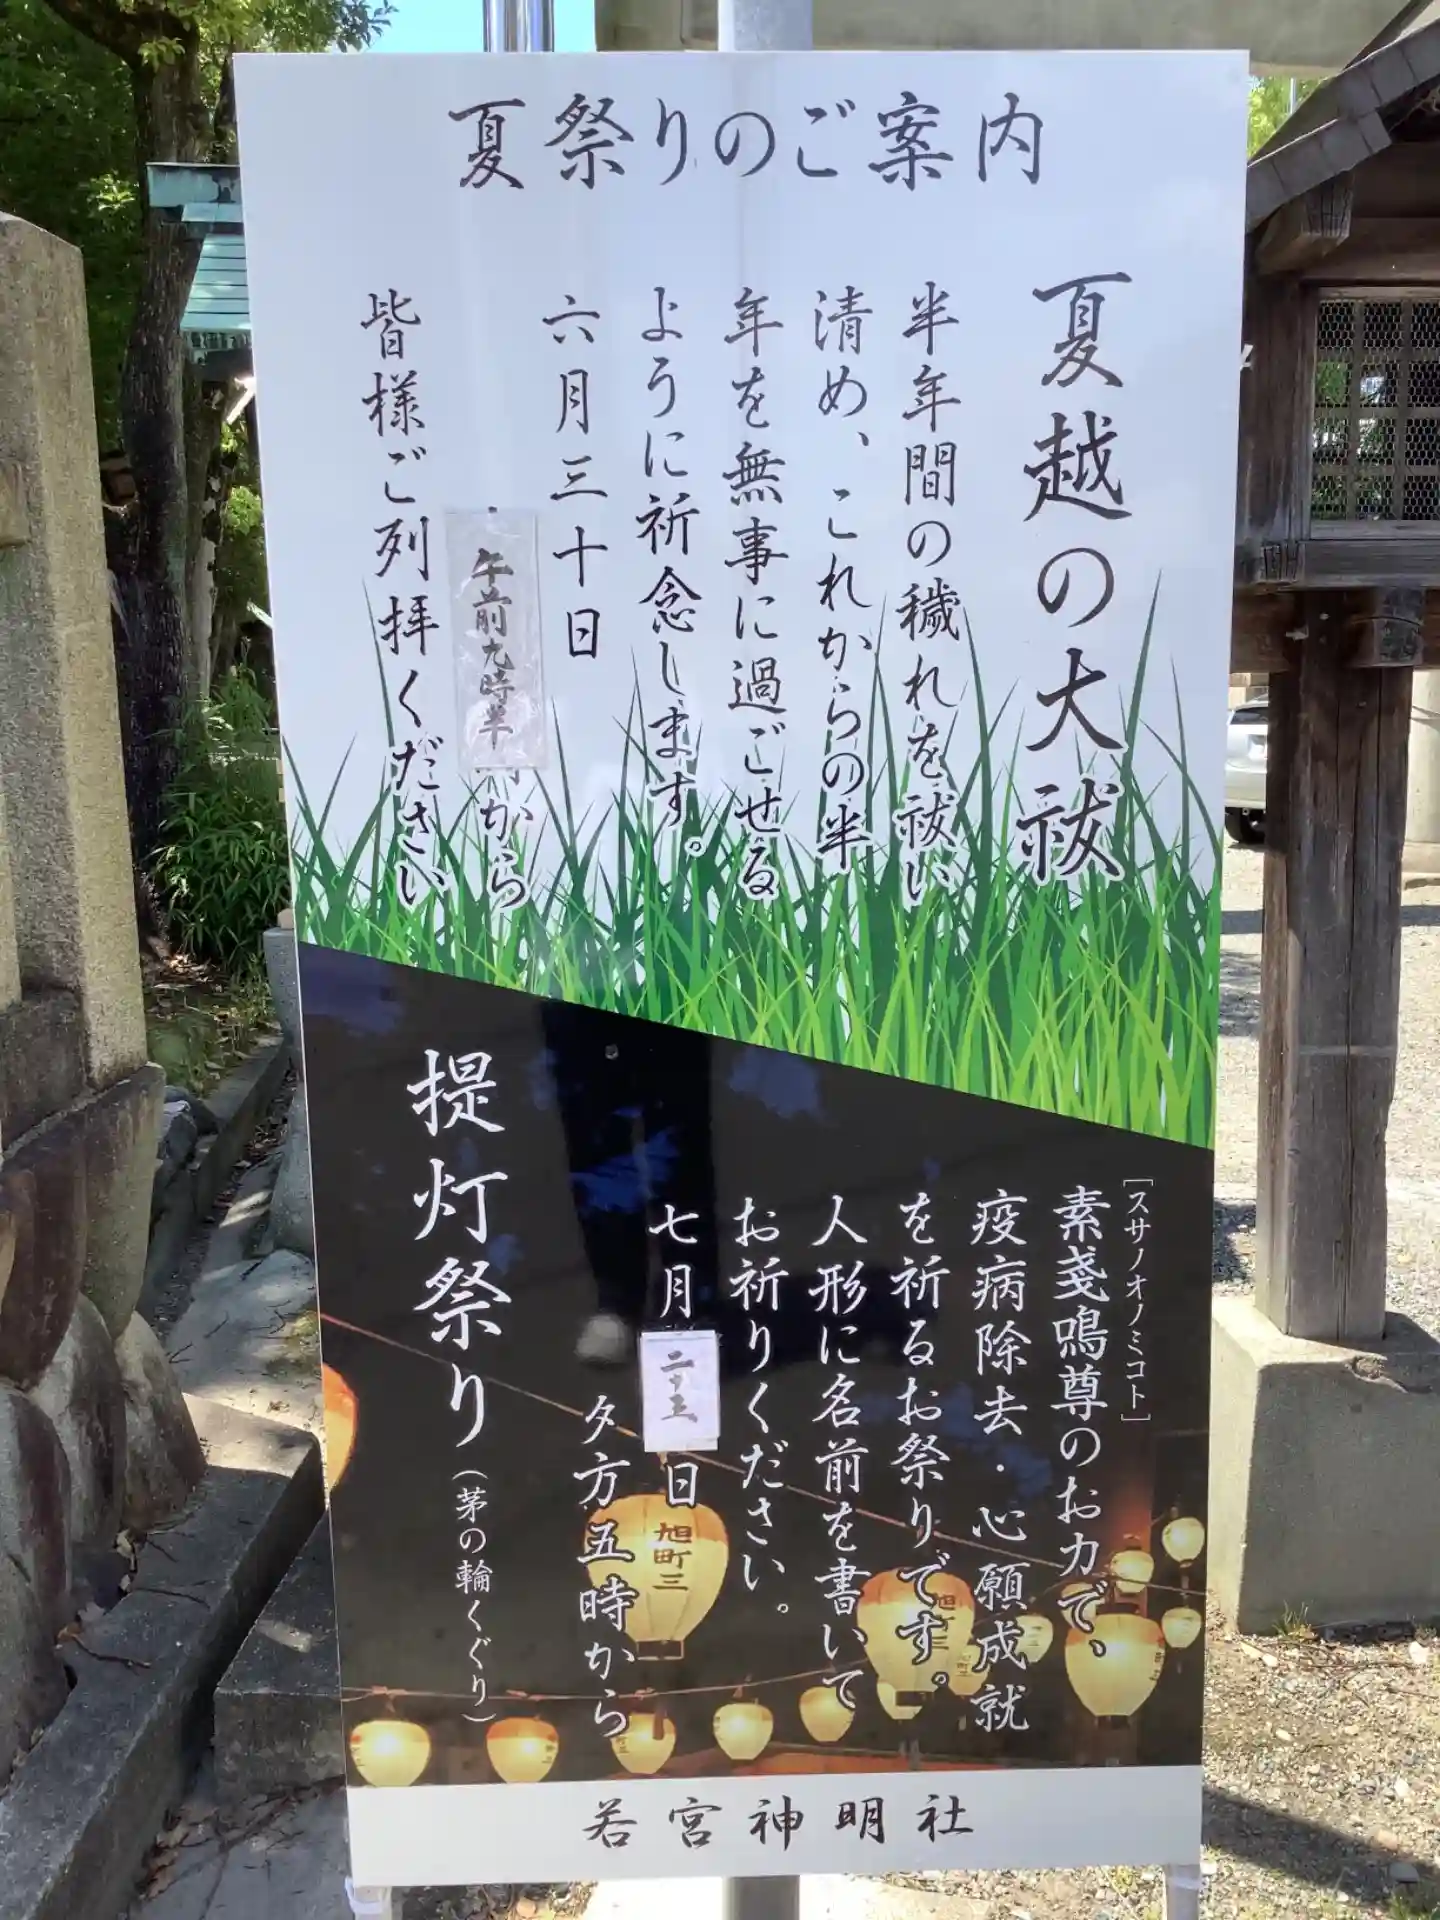 夏祭りのご案内
夏越の大祓
半年間の穢れを祓い
清め、これからの半
年を無事に過ごせる
ように祈念します。
六月三十日
午前九時半から
皆様ご列拝ください
[スサノオノミコト]
素戔嗚尊のお力で、
疫病除去・心願成就
を祈るお祭りです。
人形に名前を書いて
お祈りください。
七月二十五日
夕方五時から
提灯祭り(茅の輪くぐり)
旭町三
旭町三
若宮神明社